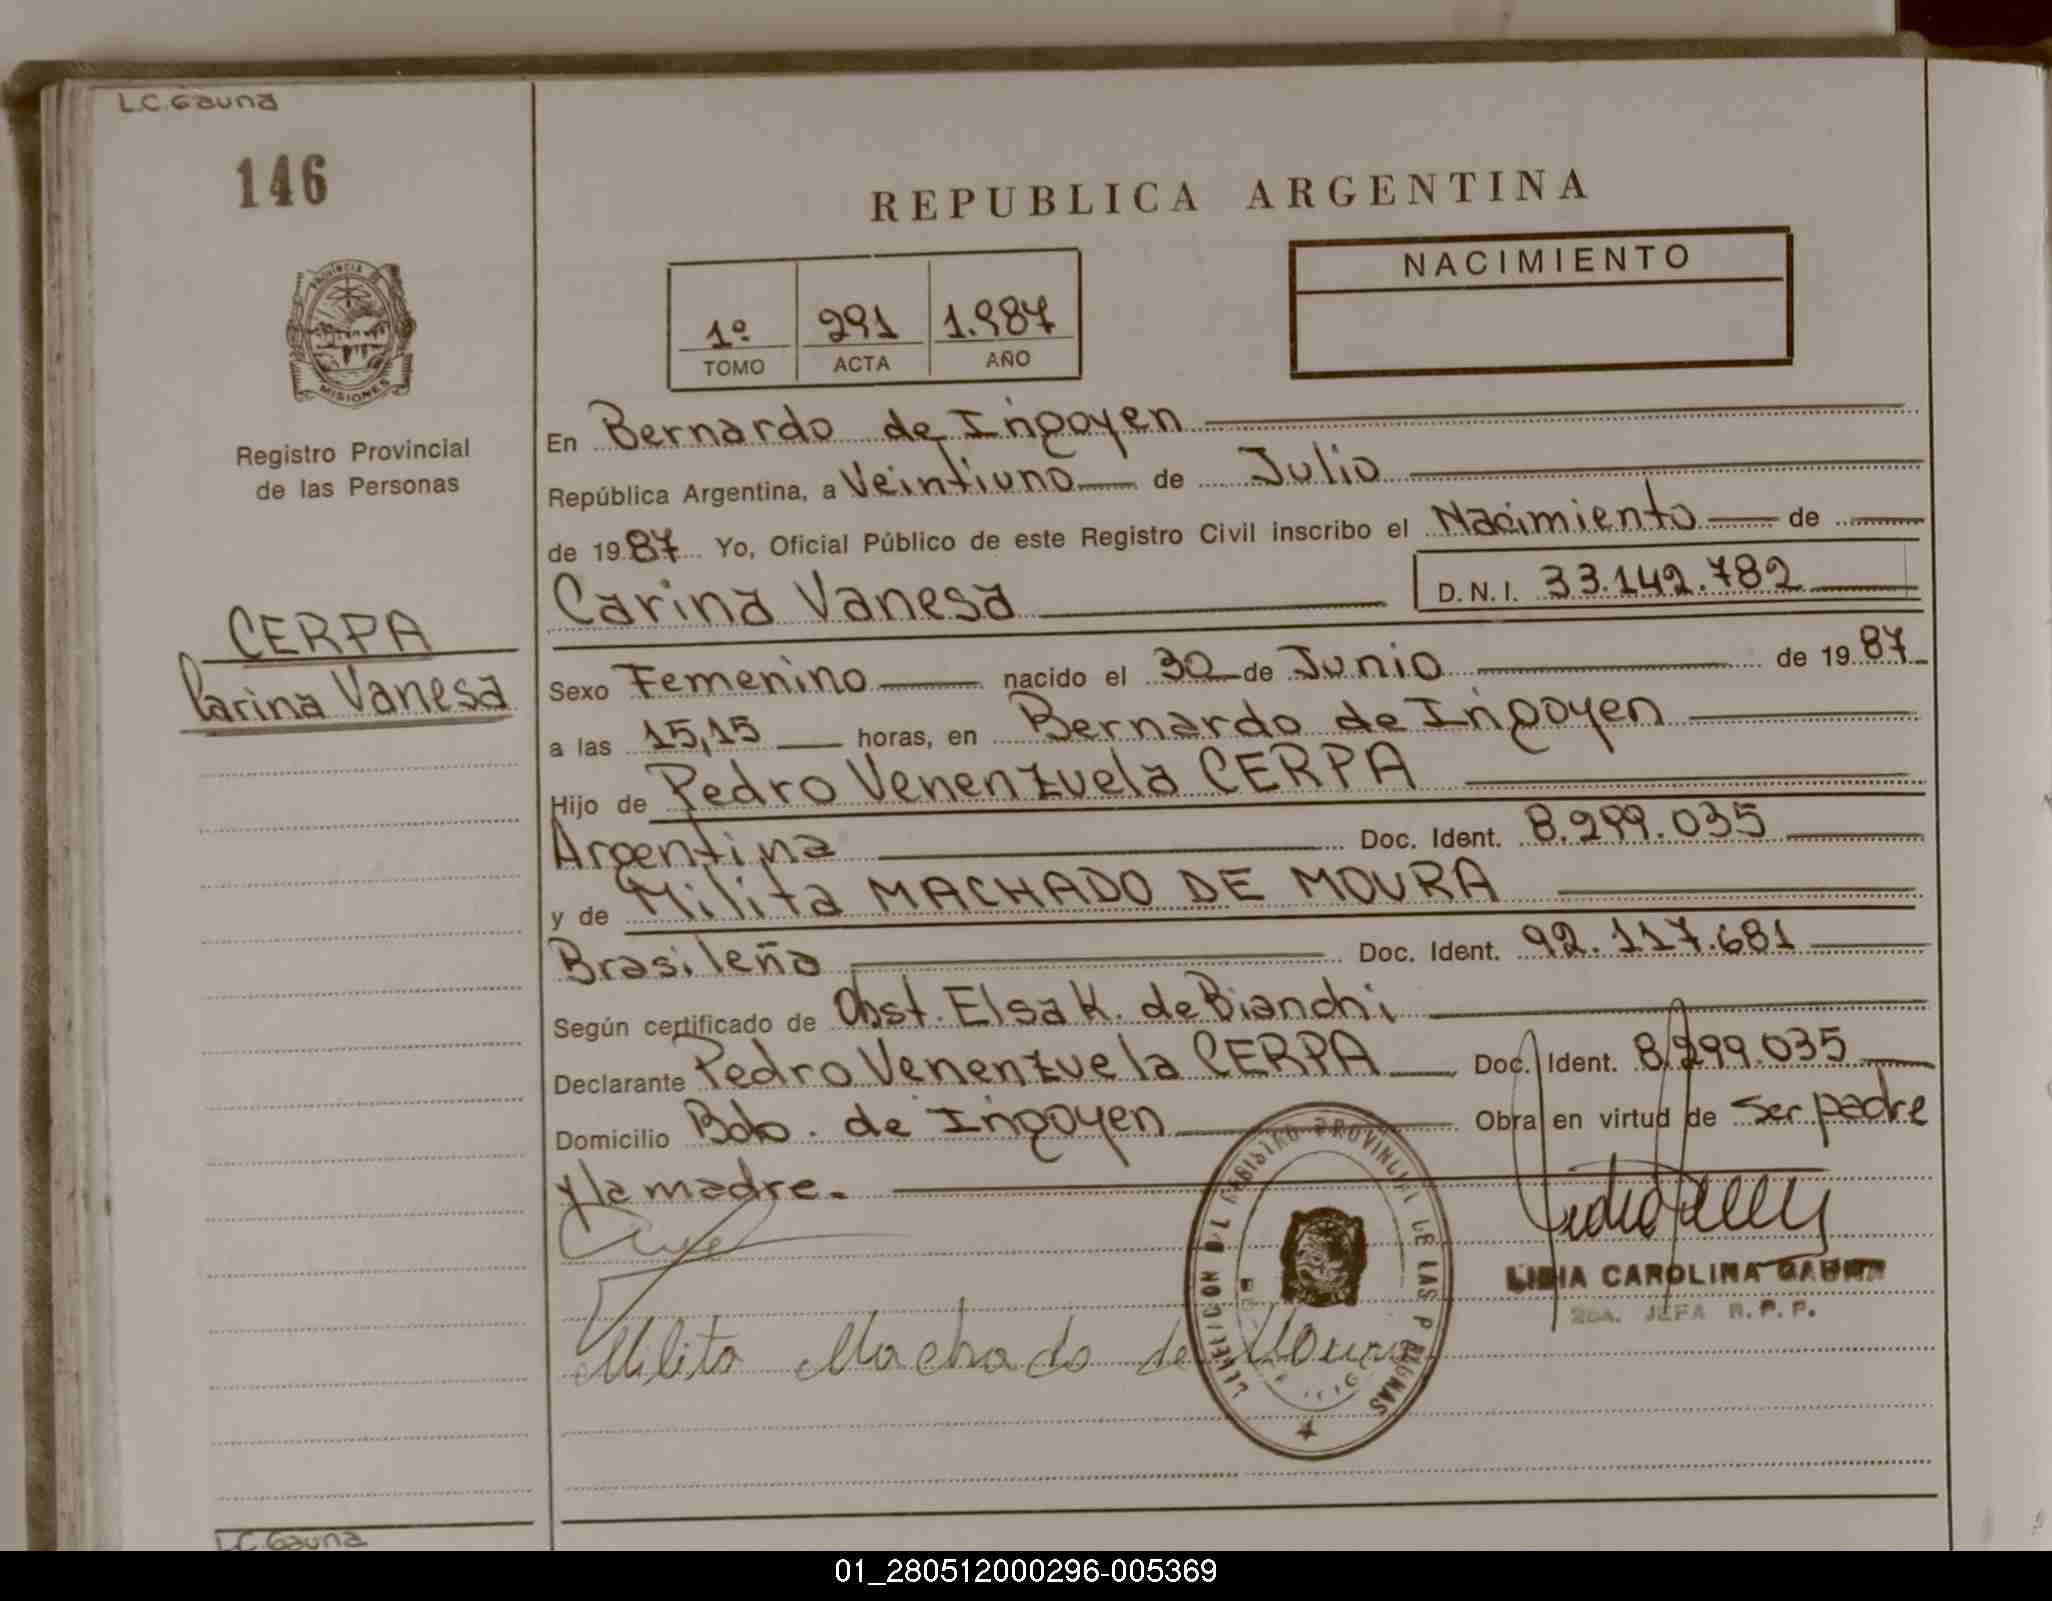 L.C. Gauna
146
REPUBLICA ARGENTINA
NACIMIENTO
1º 291 1.987
TOMO ACTA AÑO
PROVINCIA DE
MISIONES
Registro Provincial
de las Personas
CERPA
Carina Vanesa
En Bernardo de Irigoyen
República Argentina, a Veintiuno de Julio
de 1987 Yo, Oficial Público de este Registro Civil inscribo el Nacimiento de
Carina Vanesa D.N.I. 33.142.782
Sexo Femenino nacido el 30 de Junio de 1987
a las 15,15 horas, en Bernardo de Irigoyen
Hijo de Pedro Venenzuela CERPA
Argentina Doc. Ident. 8.299.035
y de Milita MACHADO DE MOURA
Brasileña Doc. Ident. 92.117.681
Según certificado de Obst. Elsa K. de Bianchi
Declarante Pedro Venenzuela CERPA Doc. Ident. 8.299.035
Domicilio Bdo. de Irigoyen Obra en virtud de ser padre
y la madre.
REGISTRO PROVINCIAL DE LAS PERSONAS
LIDIA CAROLINA GAUNA
2da. JEFA R.P.P.
Milita Machado de Moura
L.C. Gauna
01_280512000296-005369